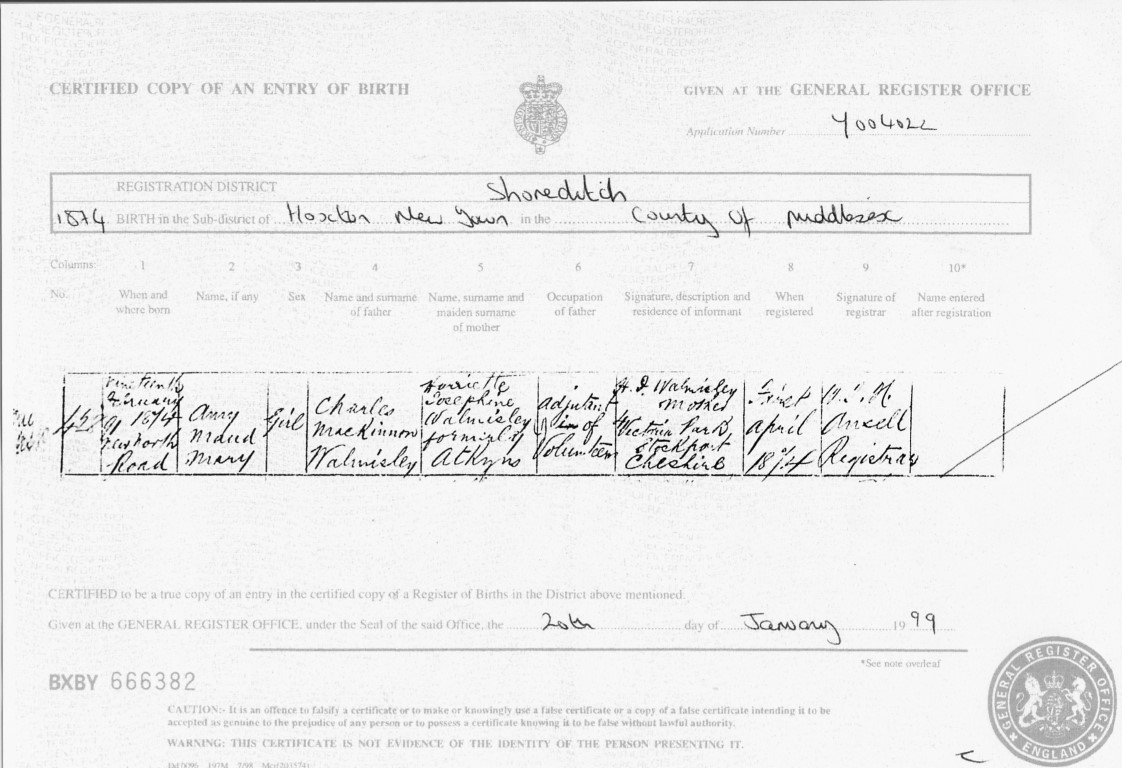 CERTIFIED COPY OF AN ENTRY OF BIRTH
GIVEN AT THE GENERAL REGISTER OFFICE
Application Number Y004022
REGISTRATION DISTRICT Shoreditch
1874 BIRTH in the Sub-district of Hoxton New Town in the County of Middlesex
Columns: 1 2 3 4 5 6 7 8 9 10*
No. When and where born
Name, if any
Sex
Name and surname of father
Name, surname and maiden surname of mother
Occupation of father
Signature, description and residence of informant
When registered
Signature of registrar
Name entered after registration
nineteenth
February
1874
Road
Amy
Maud
Mary
Girl
Charles
MacKinnon
Walmisley
Harriette
Josephine
Walmisley
formerly
Atkyns
of
Volunteers
H. J. Walmisley
Mother
Victoria Park
Stockport
Cheshire
First
April
1874
Ansell
Registrar
CERTIFIED to be a true copy of an entry in the certified copy of a Register of Births in the District above mentioned.
Given at the GENERAL REGISTER OFFICE, under the Seal of the said Office, the 20th day of January 1999
*See note overleaf
BXBY 666382
CAUTION:- It is an offence to falsify a certificate or to make or knowingly use a false certificate or a copy of a false certificate intending it to be
accepted as genuine to the prejudice of any person or to possess a certificate knowing it to be false without lawful authority.
WARNING: THIS CERTIFICATE IS NOT EVIDENCE OF THE IDENTITY OF THE PERSON PRESENTING IT.
GENERAL REGISTER OFFICE
ENGLAND